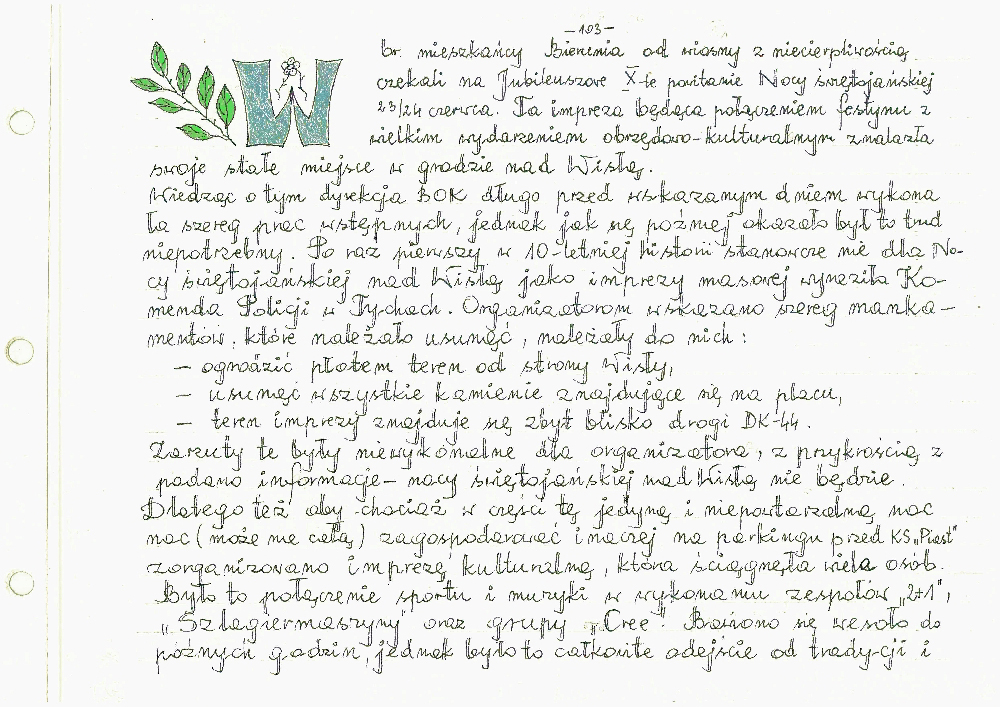 -103-
W br. mieszkańcy Bierunia od wiosny z niecierpliwością
czekali na Jubileuszowe X-te powitanie Nocy świętojańskiej
23/24 czerwca. Ta impreza będąca połączeniem festynu z
wielkim wydarzeniem obrzędowo-kulturalnym znalazła
swoje stałe miejsce w grodzie nad Wisłą.
Wiedząc o tym dyrekcja BOK długo przed wskazanym dniem wykona
ła szereg prac wstępnych, jednak jak się później okazało był to trud
niepotrzebny. Po raz pierwszy w 10-letniej historii stanowcze nie dla No-
cy świętojańskiej nad Wisłą jako imprezy masowej wyraziła Ko-
menda Policji w Tychach. Organizatorom wskazano szereg manka-
mentów, które należało usunąć, należały do nich:
- ogrodzić płotem teren od strony Wisły,
- usunąć wszystkie kamienie znajdujące się na placu,
- teren imprezy znajduje się zbyt blisko drogi DK-44.
Zarzuty te były niewykonalne dla organizatora, z przykrością z
podano informację - nocy świętojańskiej nad Wisłą nie będzie.
Dlatego też aby chociaż w części tę jedyną i niepowtarzalną noc
noc (może nie całą) zagospodarować inaczej na parkingu przed KS „Piast"
zorganizowano imprezę kulturalną, która ściągnęła wiela osób.
Było to połączenie sportu i muzyki w wykonaniu zespołów „2+1",
„Szlagiermaszyny" oraz grupy „Cree". Bawiono się wesoło do
późnych godzin, jednak było to całkowite odejście od tradycji i